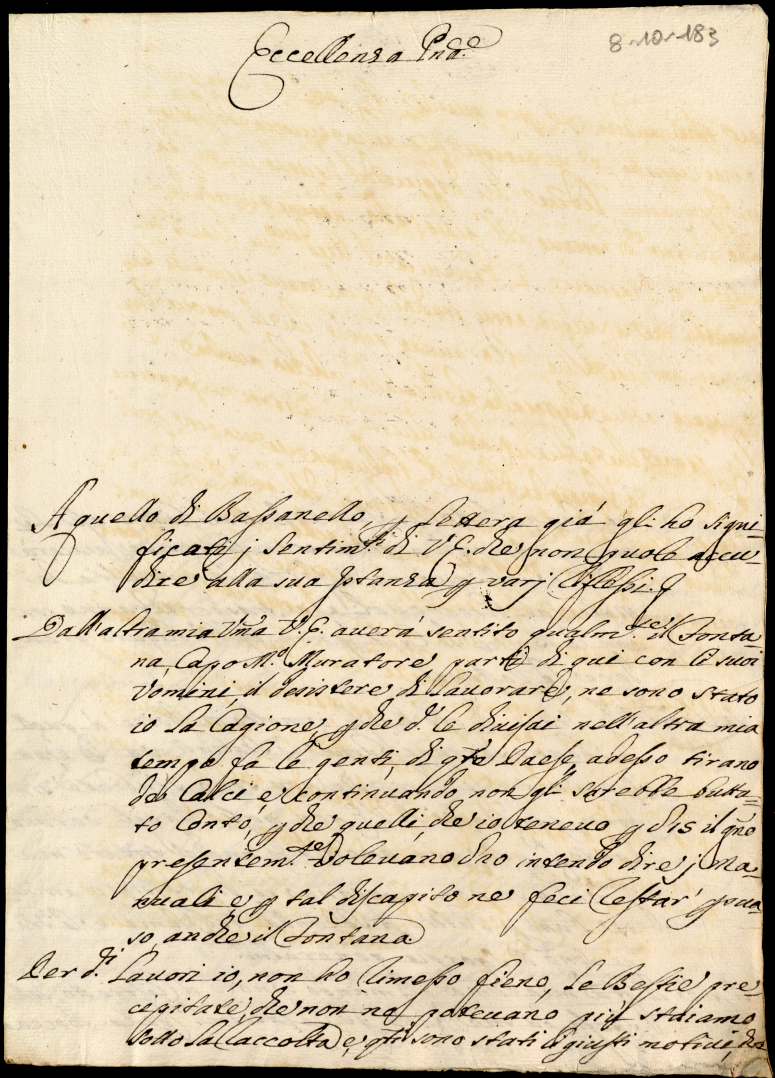 8-10-183
Eccellenza Pnã.e
A quello di Bassanello, p lettera giá gli ho signi-
ficati j sentim.ti di V.E. che non vuole accu-
dire alla sua Istanza p varj riflessi.
Dall'altra mia Vma V.E. averá sentito qualm.te il Fonta-
na, Capo M.o Muratore parti di qui con li suoi
Uomini, il desistere di lavorare, ne sono stato
io la Cagione, p che d.e le divisai nell'altra mia
tempo fa le genti di qto Paese, adesso tirano
de Calci e continuando non gli sarebbe butta-
to Conto, p che quelli, che io tenevo p dis il gno
presentem.te Volevano d'no intendo dire j Ma-
nuali e p tal discapito ne feci restar' psua-
so, anche il Fontana
Per d.ti Lavori io, non ho rimesso fieno, le Bestie pre-
cipitate, che non ne potevano piú stiamo
sotto la raccolta e, qti sono stati i giusti motivi, che